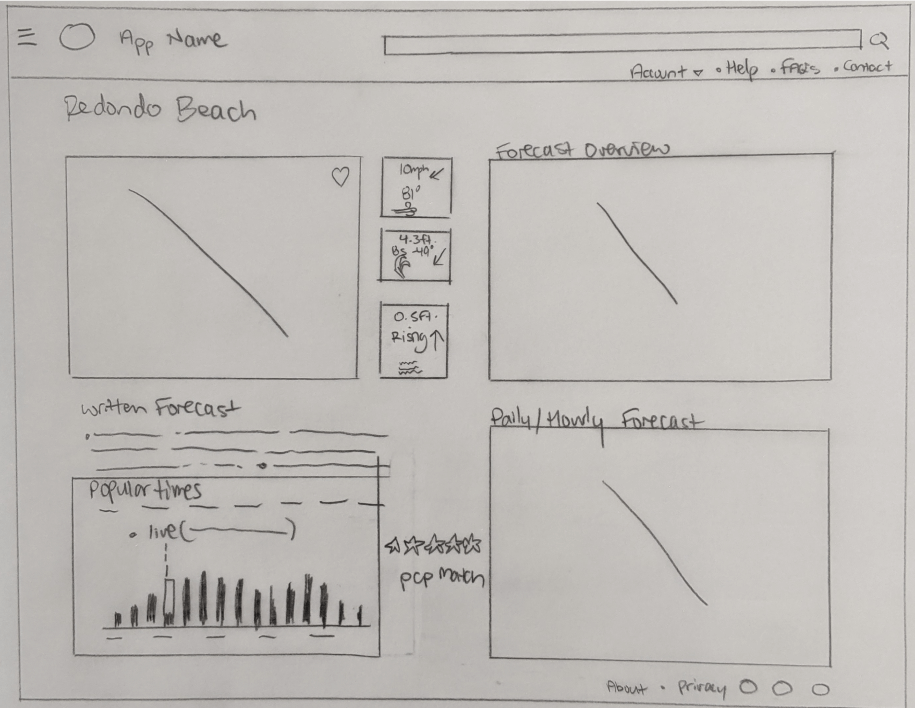 App Name
Account • Help • FAQs • Contact
Redondo Beach
10mph
81°
4.3ft.
8s 49°
0.5ft.
Rising
Forecast Overview
Written Forecast
Popular times
• live( )
pcp match
Daily/Hourly Forecast
About • Privacy